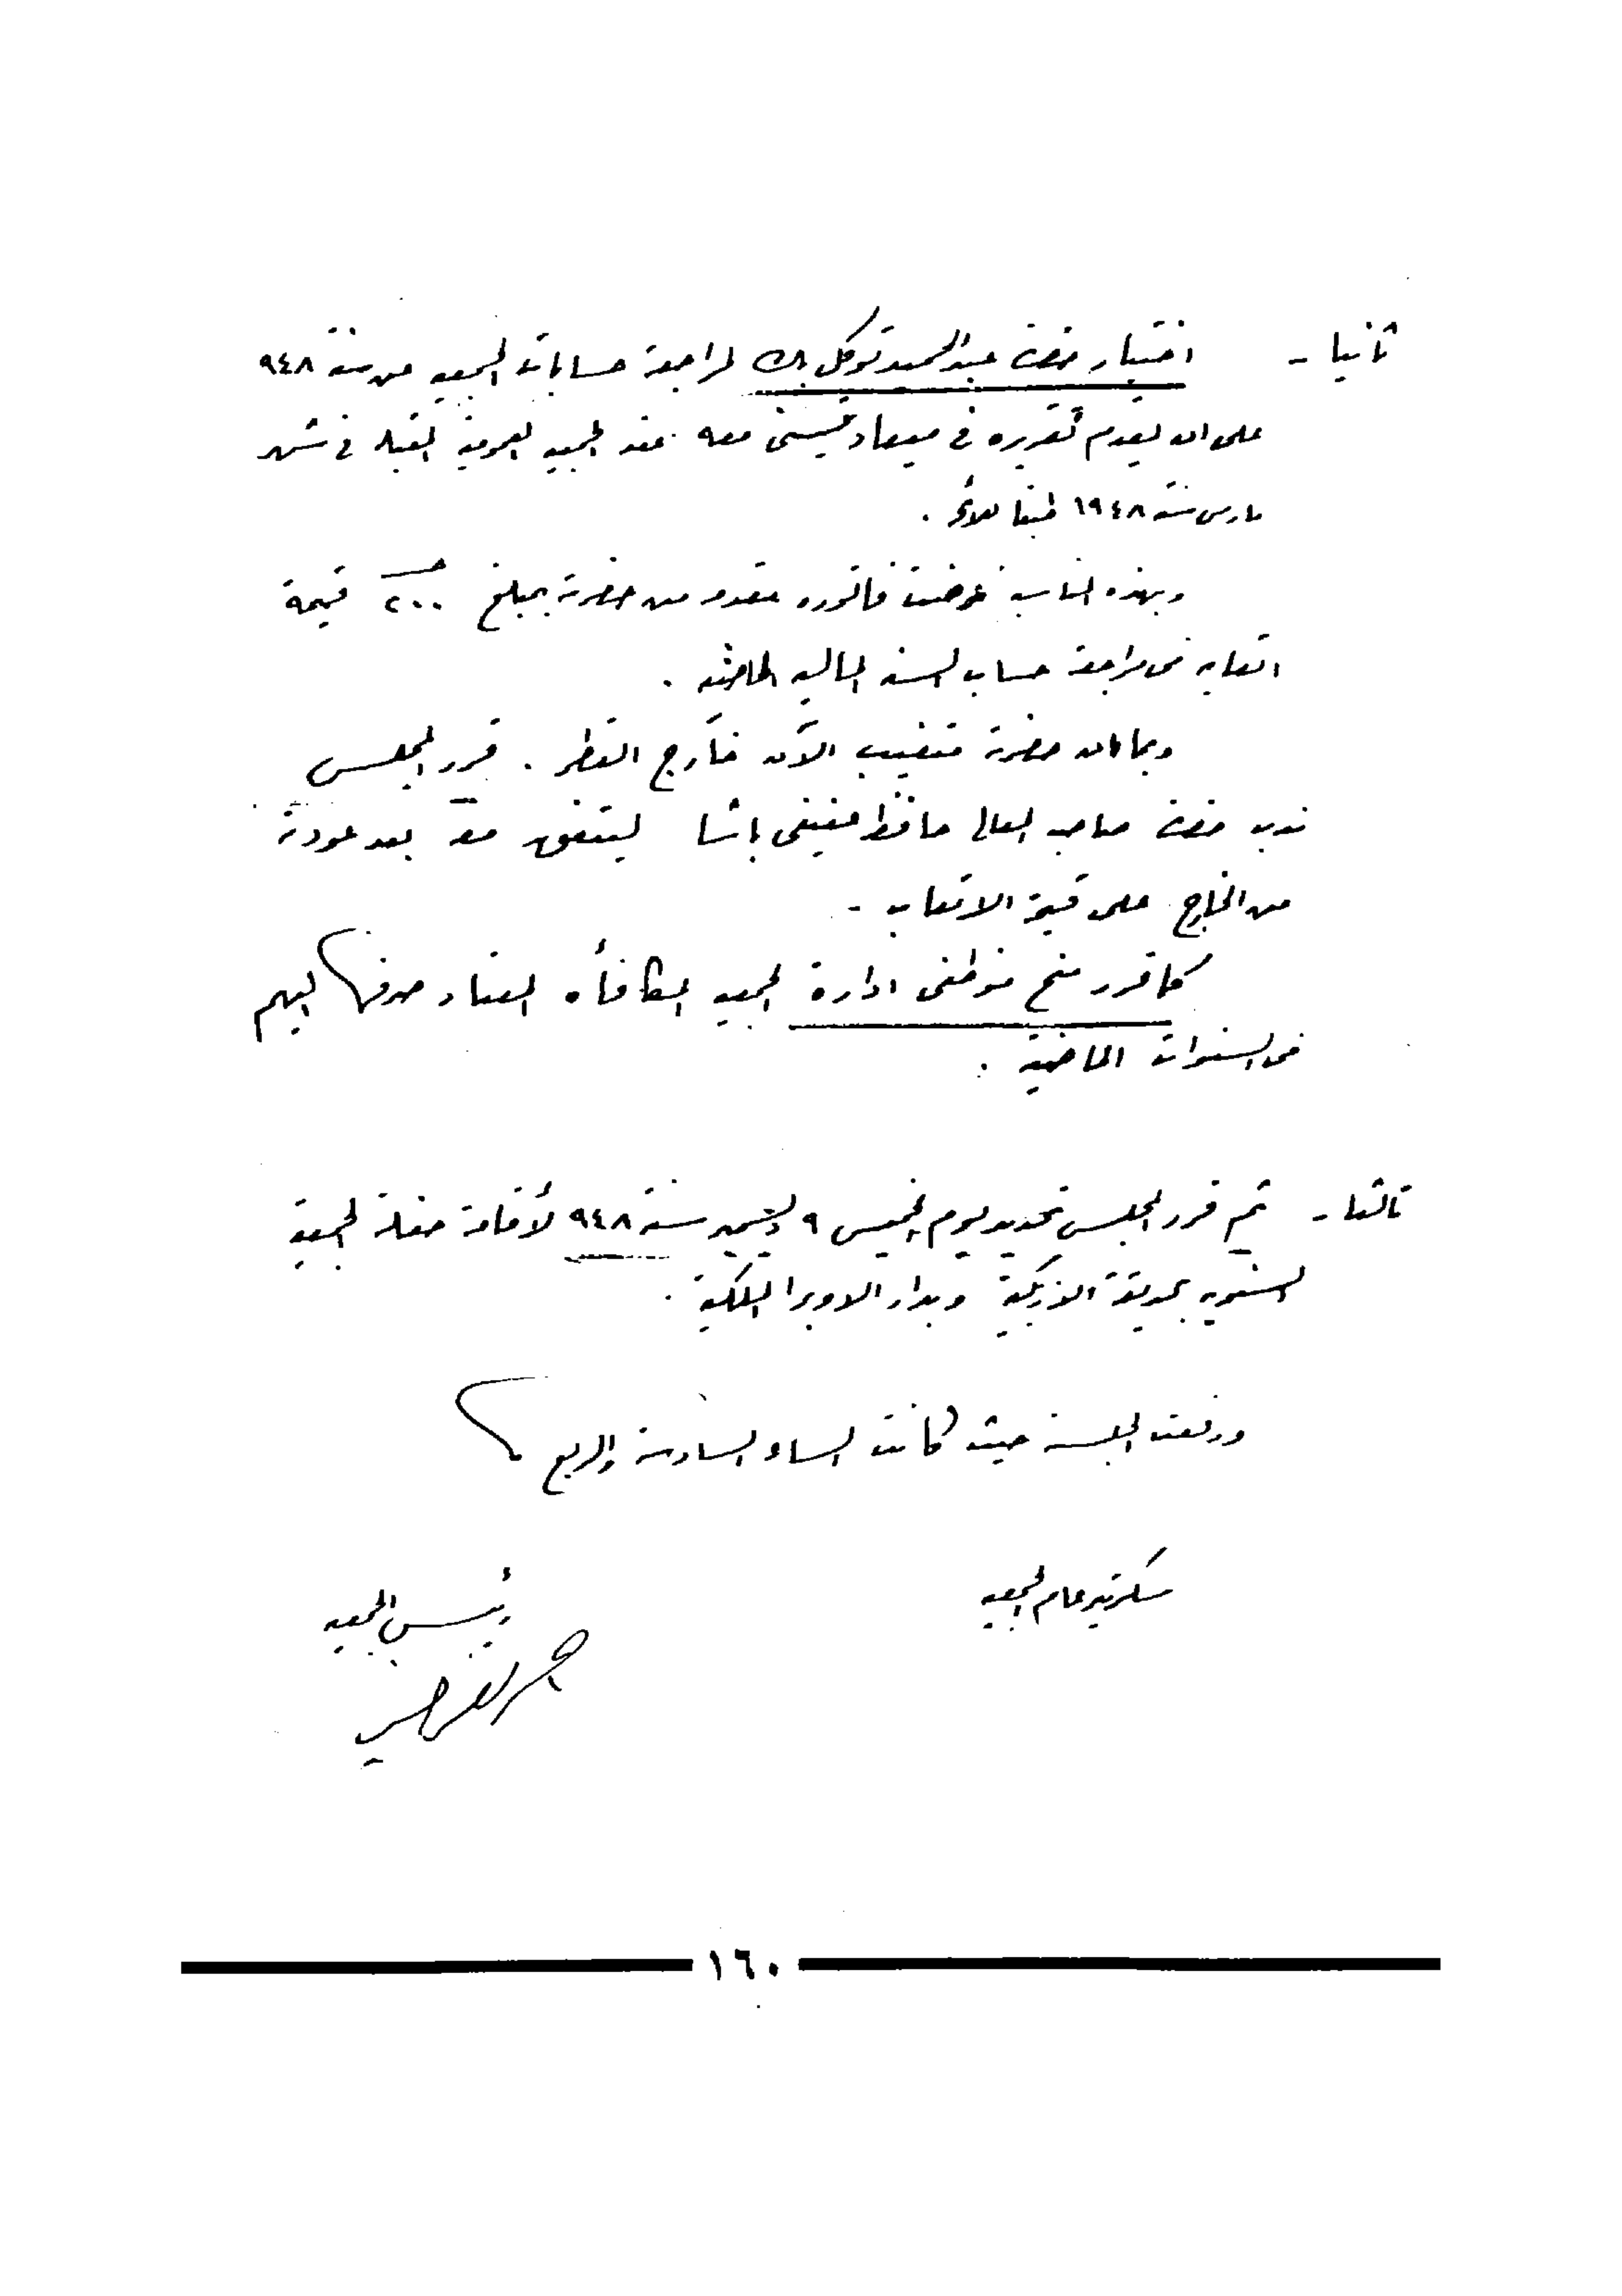 ثانيا - اختيار حضرة عبد الحميد توكل بك لمراجعة حسابات الجمعيه عن سنة ٩٤٨
على ان يقدم تقريره في ميعاد يتسنى معه عقد الجمعيه العمومية المقبله في شهر
مارس سنة ١٩٤٨ طبقا
وبهذه المناسبه عرضت فاتوره مقدمه من حضرته بمبلغ ٢٠٠ قيمة
اتعابه في مراجعة حساب السنه الماليه الماضيه .
وبما ان حضرته متغيب الآن خارج القطر . قرر المجلس
ندب حضرة صاحب المعالى حافظ عفيفى باشا ليتفق معه بعد عودته
من الخارج على قيمة الاتعاب -
كما قرر منح موظفى ادارة الجمعيه المكافأه المعتاد صرفها اليهم
في السنوات الماضيه .
ثالثا - ثم قرر المجلس تحديد يوم الخميس ٩ ديسمبر سنة ٩٤٨ لأقامة حفلة الجمعية
السنويه بحديقة الازبكية وبدار الاوبرا الملكية .
ورفعت الجلسة حيث كانت الساعه السادسة والربع
سكرتير عام الجمعيه
رئيس الجمعيه
١٦٠